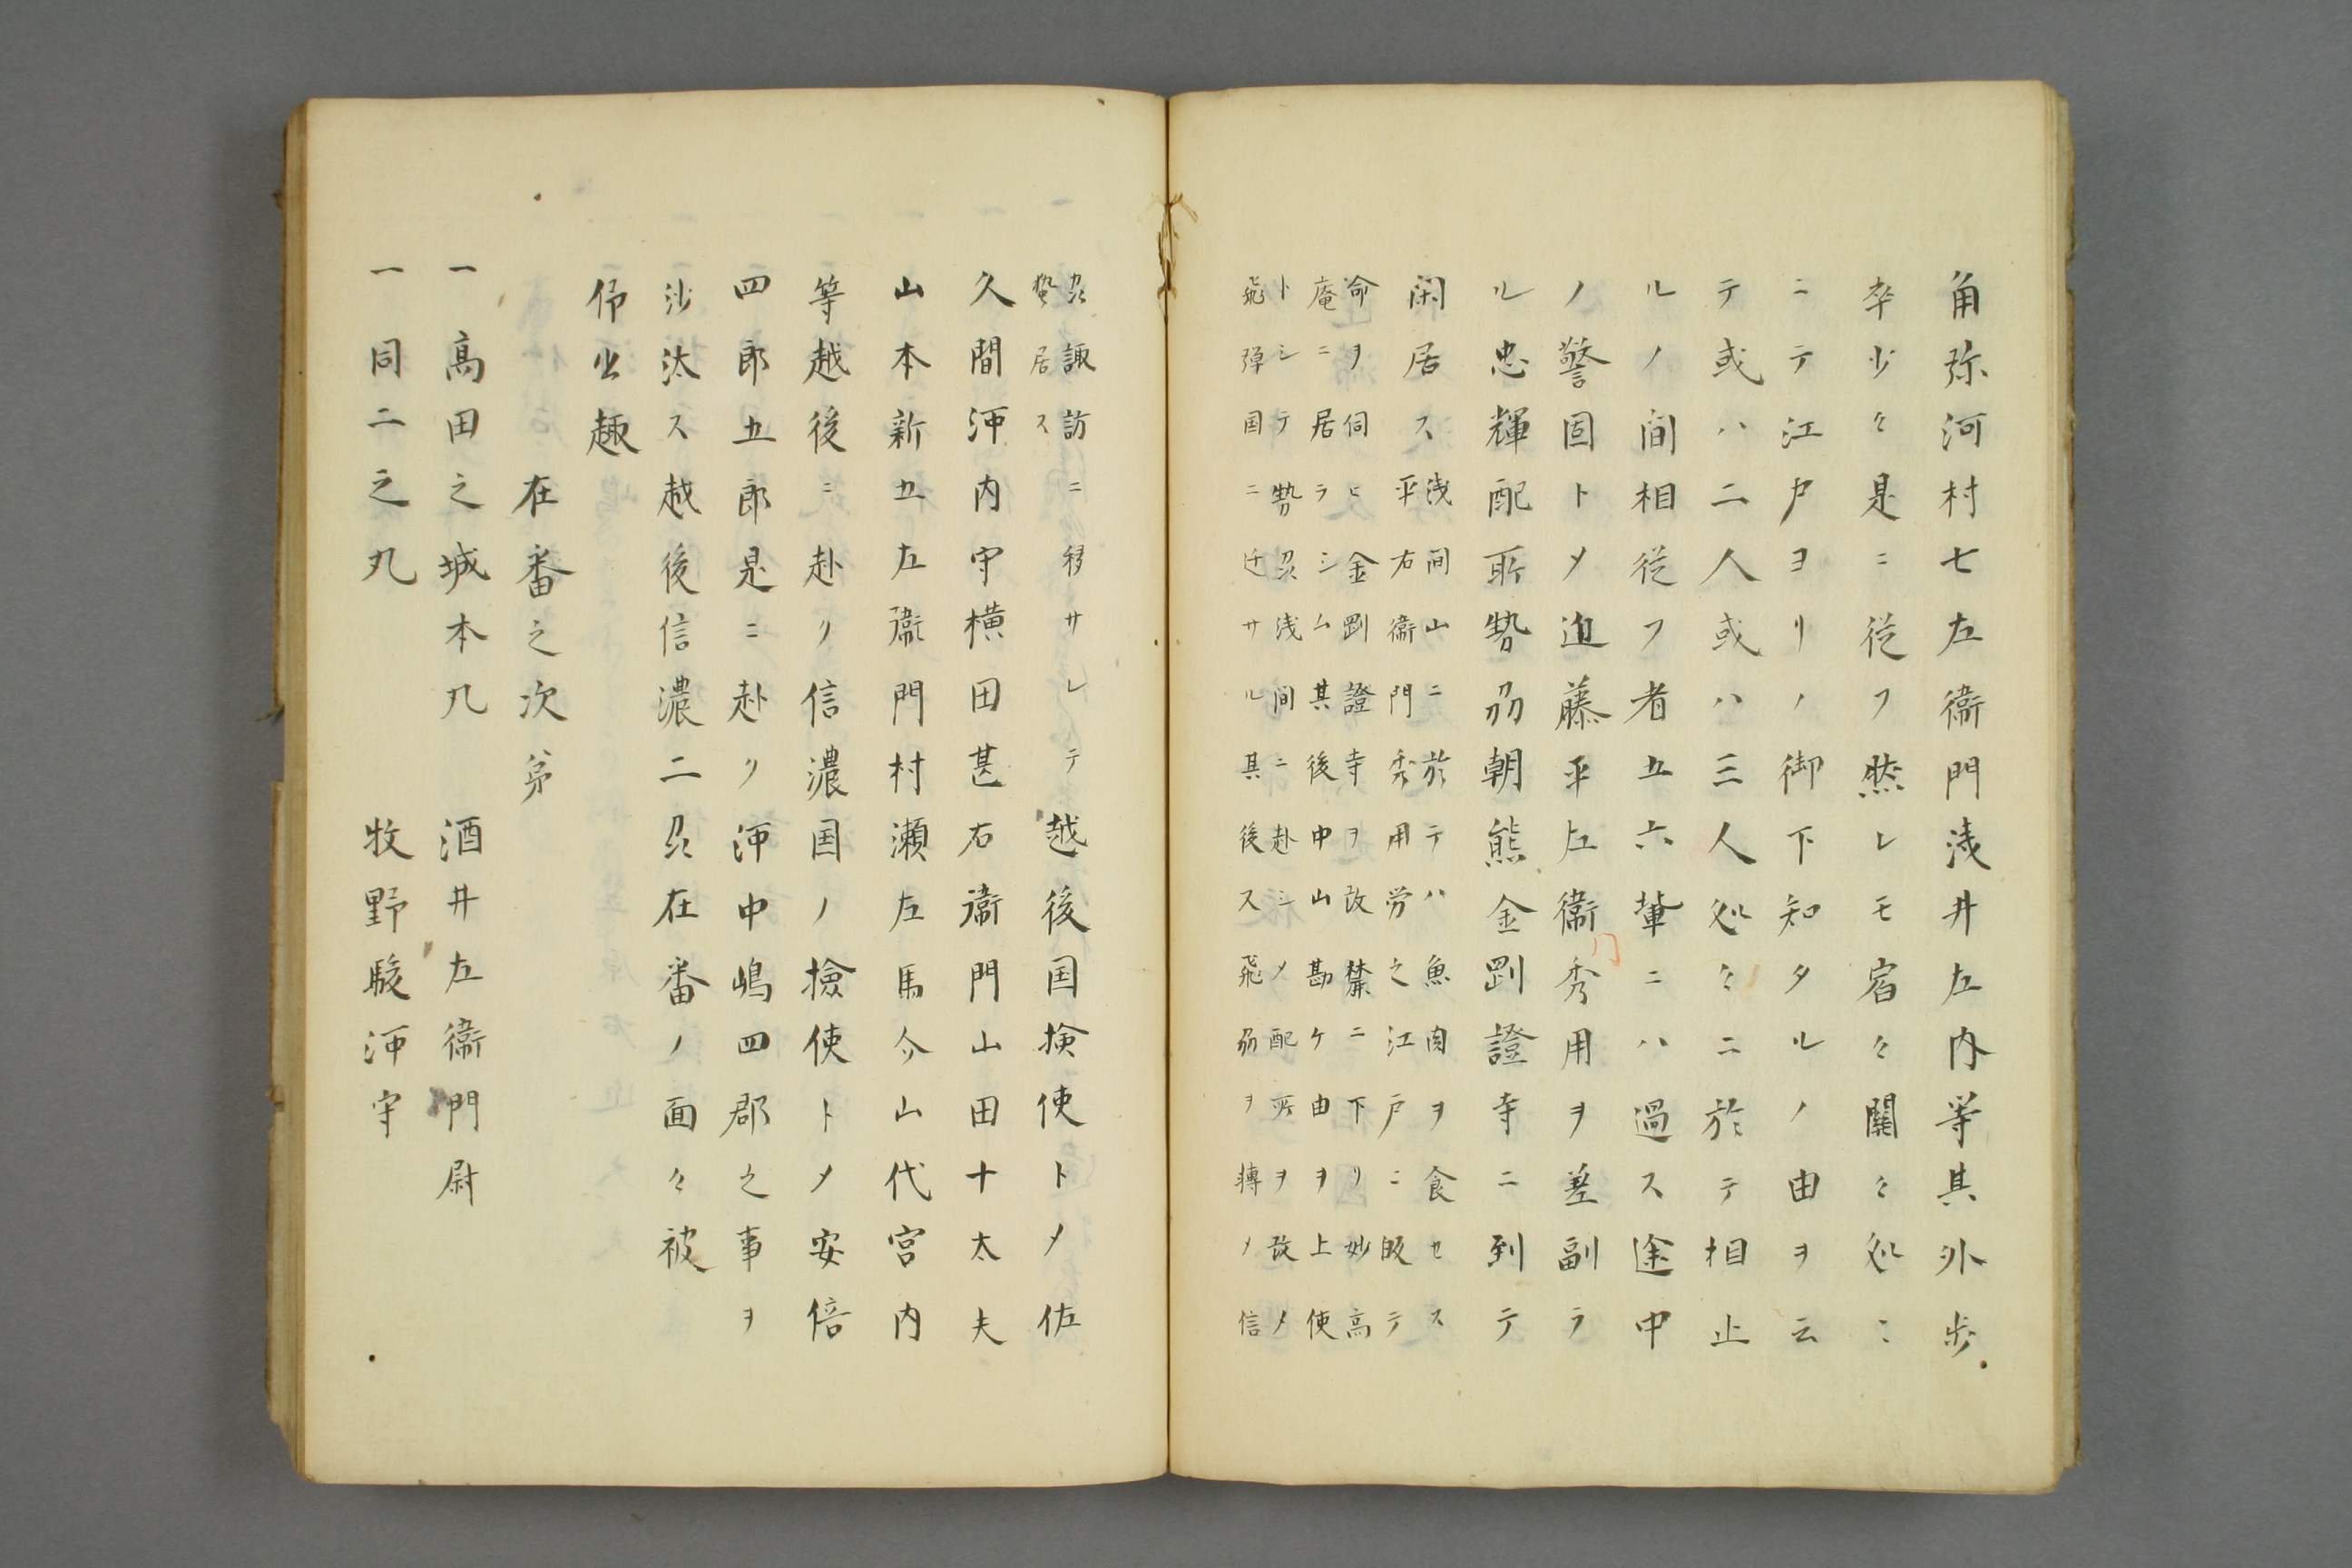 角弥河村七左衛門浅井左内等其外歩
卒少々是ニ従フ然レモ宿々關々処ニ
ニテ江戸ヨリノ御下知タルノ由ヲ云
テ或ハ二人或ハ三人処々ニ於テ相止
ルノ間相従フ者五六輩ニハ過ス途中
ノ警固トメ近藤平左衛秀用ヲ差副ラ
門
ル忠輝配所勢刕朝熊金剛證寺ニ到テ
閑居ス
浅間山ニ於テハ魚肉ヲ食セス
平右衛門秀用労之江戸ニ皈テ
命ヲ伺ヒ金剛證寺ヲ改禁ニ下リ妙高
庵ニ居ラシム其後中山勘ケ由ヲ上使
トシテ勢刕浅間ニ赴シメ配所ヲ改メ
飛弾国ニ迁サル其後ス飛刕ヲ轉メ信
刕諏訪ニ移サレテ
蟄居ス
越後国検使トメ佐
久間河内守横田甚右衛門山田十太夫
山本新五左衛門村瀬左馬介山代宮内
等越後ニ赴リ信濃国ノ撿使トメ安倍
四郎五郎是ニ赴リ河中嶋四郡之事ヲ
沙汰ス越後信濃二刕在番ノ面々被
仰出趣
在番之次第
一高田之城本丸 酒井左衛門尉
一同二之丸 牧野駿河守